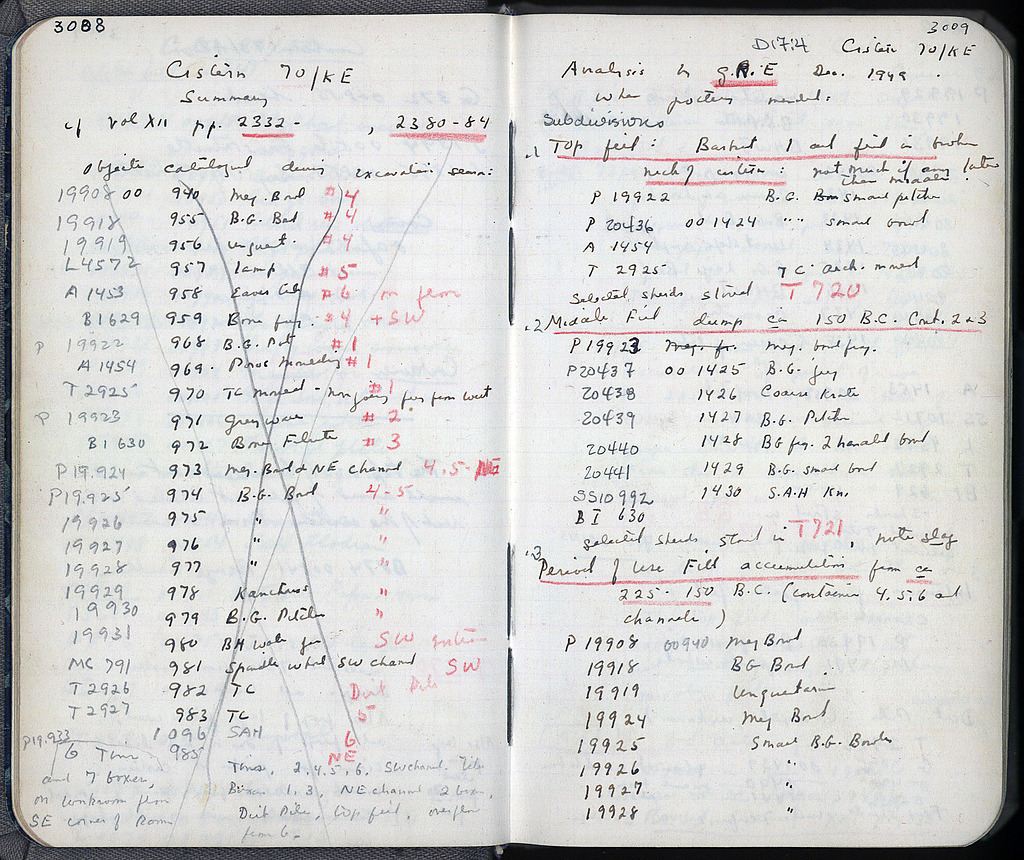 3008
Cistern 70/KE
Summary
cf vol XII pp. 2332- , 2380-84
Objects catalogued during excavation season:
19908 00 940 Meg. Bowl #4
19918 955 B.G. Bowl #4
19919 956 unguent. #4
L4572 957 lamp #5
A 1453 958 #6 on floor
BI 629 959 Bone #4 + SW
P 19922 968 B.G. Pot #1
A 1454 969 Poros #1
T 2925 970 TC #1
P 19923 971 Grey ware #2
BI 630 972 Bone #3
P19.924 973 Meg. Bowl & NE channel 4.5-NE
P19.925 974 B.G. Bowl 4-5
19926 975 " "
19927 976 " "
19928 977 " "
19929 978 Kantharos "
19930 979 B.G. Pitcher "
19931 980 SW
MC 791 981 Spindle whorl SW channel SW
T 2926 982 TC Dirt Pile
T 2927 983 TC 5
1096 SAH 6
P19.933 985 NE
6 Tins
and 7 boxes,
on workroom floor
SE corner of Room
Tins, 2, 4, 5, 6, SW channel,
Boxes 1, 3, NE channel 2 boxes,
Dirt Pile, top fill, over floor
from 6.
3009
D17:4 Cistern 70/KE
Analysis by G.R.E Dec. 1949.
when pottery mended:
Subdivisions
.1 Top fill: Basket 1 and fill in broken
neck of cistern: not much if any later
than middle
P 19922 B.G. small pitcher
P 20436 00 1424 " " small bowl
A 1454
T 2925 TC
Selected sherds stored T 720
.2 Middle Fill dump ca 150 B.C. Cont. 2 & 3
P 19923 Meg. bowl frg.
P20437 00 1425 B.G. jug
20438 1426 Coarse Krater
20439 1427 B.G. Pitcher
20440 1428 BG frg. 2 handled bowl
20441 1429 B.G. small bowl
SS10992 1430 S.A.H Kn.
BI 630
selected sherds stored in T721, note slag
.3 Period of Use Fill accumulation from ca
225-150 B.C. (container 4.5.6 and
channels)
P 19908 00940 Meg Bowl
19918 BG Bowl
19919 Unguentarium
19924 Meg Bowl
19925 Small B.G. Bowls
19926 "
19927 "
19928 "